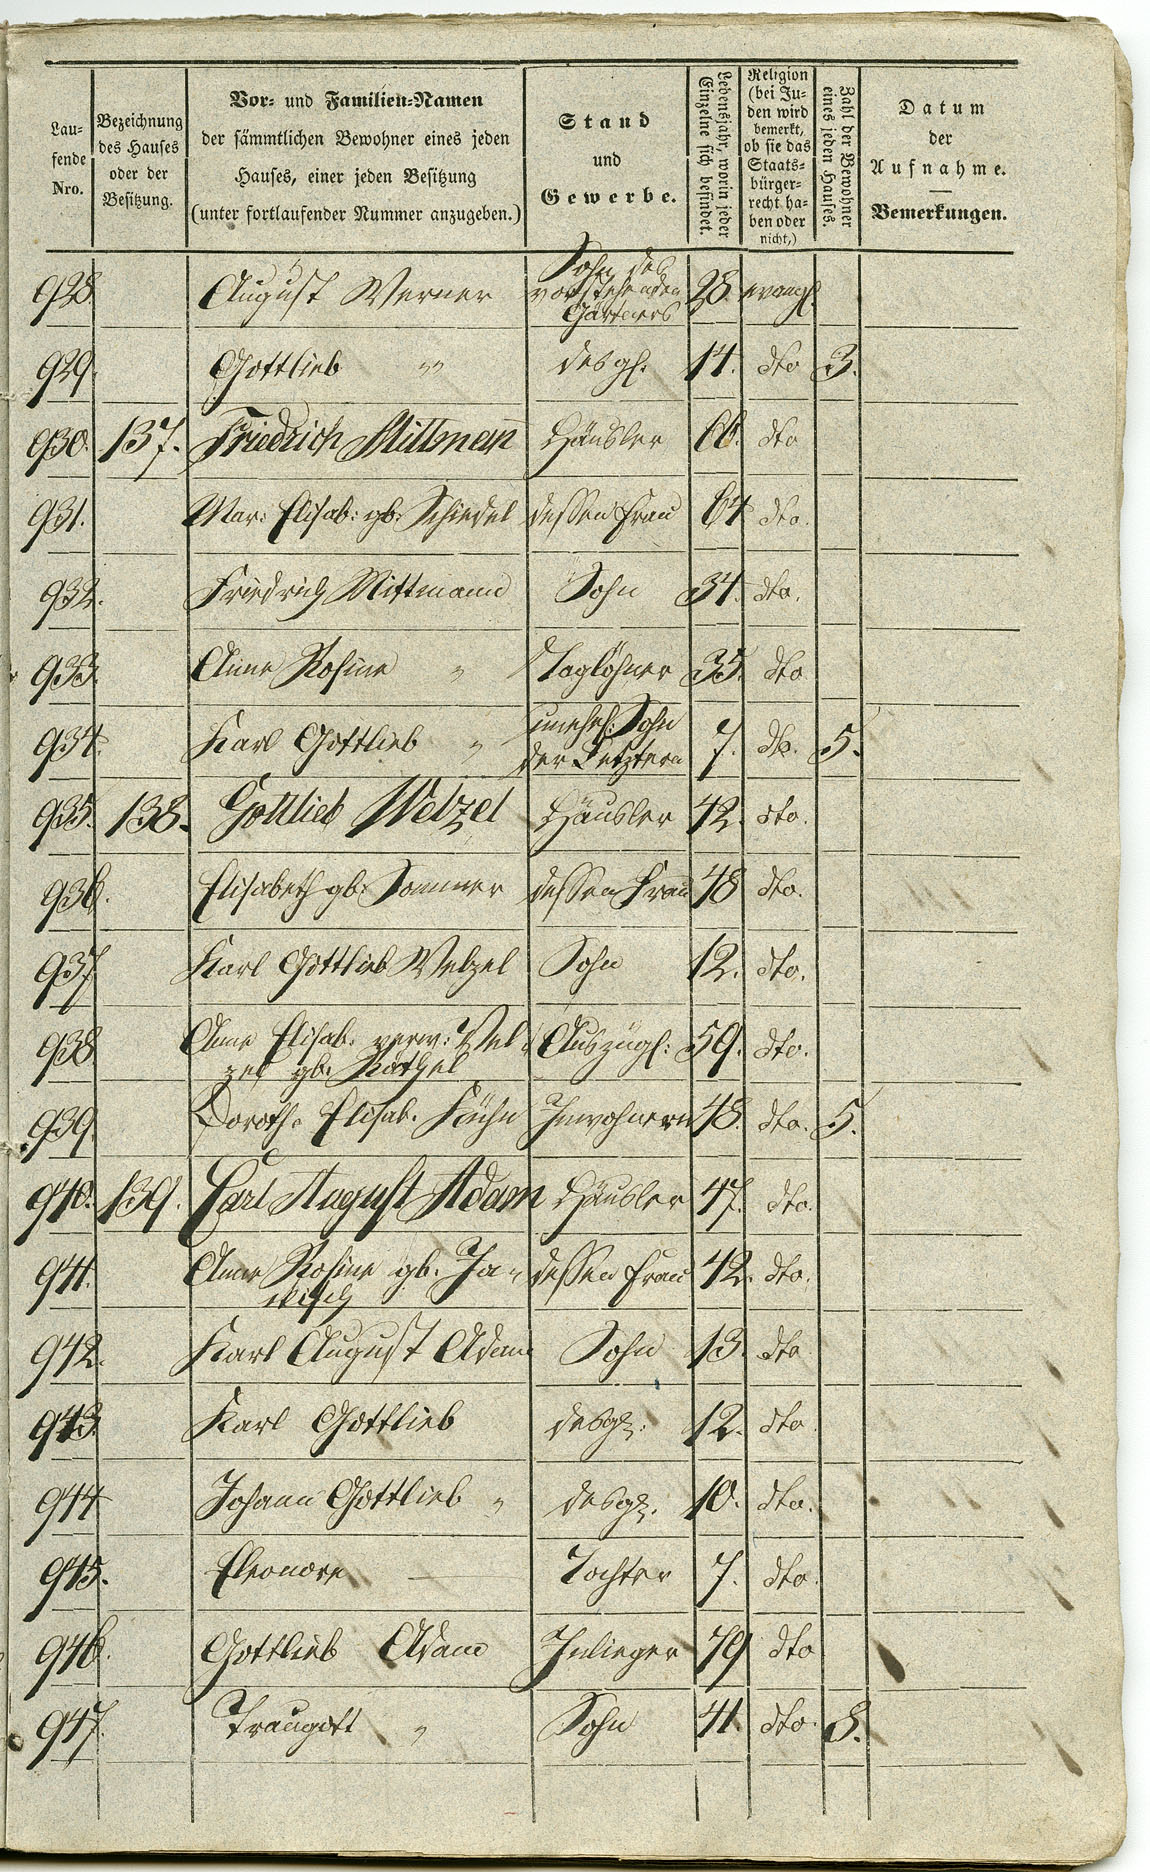 Lau-
fende
Nro.
Bezeichnung
des Hauses
oder der
Besitzung.
Vor- und Familien-Namen
der sämmtlichen Bewohner eines jeden
Hauses, einer jeden Besitzung
(unter fortlaufender Nummer anzugeben.)
Stand
und
Gewerbe.
Lebensjahr, worin jeder
Einzelne sich befindet.
Religion
(bei Ju-
den wird
bemerkt,
ob sie das
Staats-
bürger-
recht ha-
ben oder
nicht,)
Zahl der Bewohner
eines jeden Hauses.
Datum
der
Aufnahme.
Bemerkungen.
928. August Werner Sohn des vorstehenden Gärtners 28. evangl.
929. Gottlieb " desgl. 14. dto 3.
930. 137. Friedrich Mittmann Häusler dto
931. Mar: Elisab: gb: Schiedel dessen Frau 64 dto.
932. Friedrich Mittmann Sohn 34. dto.
933. Anne Rosine " Taglöhner 35. dto
934. Karl Gottlieb " unehel: Sohn der Letztern 7. dto. 5.
935. 138. Gottlieb Welzel Häusler 42. dto.
936. Elisabeth gb: Sommer dessen Frau 48 dto.
937 Karl Gottlieb Welzel Sohn 12. dto.
938 Anne Elisab. verw: Wel-
zel gb. Auszügl: 59. dto.
939. Doroth. Elisab. Inwohnern 48. dto. 5.
940. 139. Carl August Adam Häusler 47. dto.
941. Anne Rosine gb. Ja- dessen Frau 42. dto.
942. Karl August Adam Sohn 13. dto
943. Karl Gottlieb desgl. 12. dto
944 Johann Gottlieb " desgl. 10. dto.
945. Eleonore — Tochter 7. dto.
946. Gottlieb Adam Inlieger 79 dto
947. Traugott " Sohn 41 dto. 8.